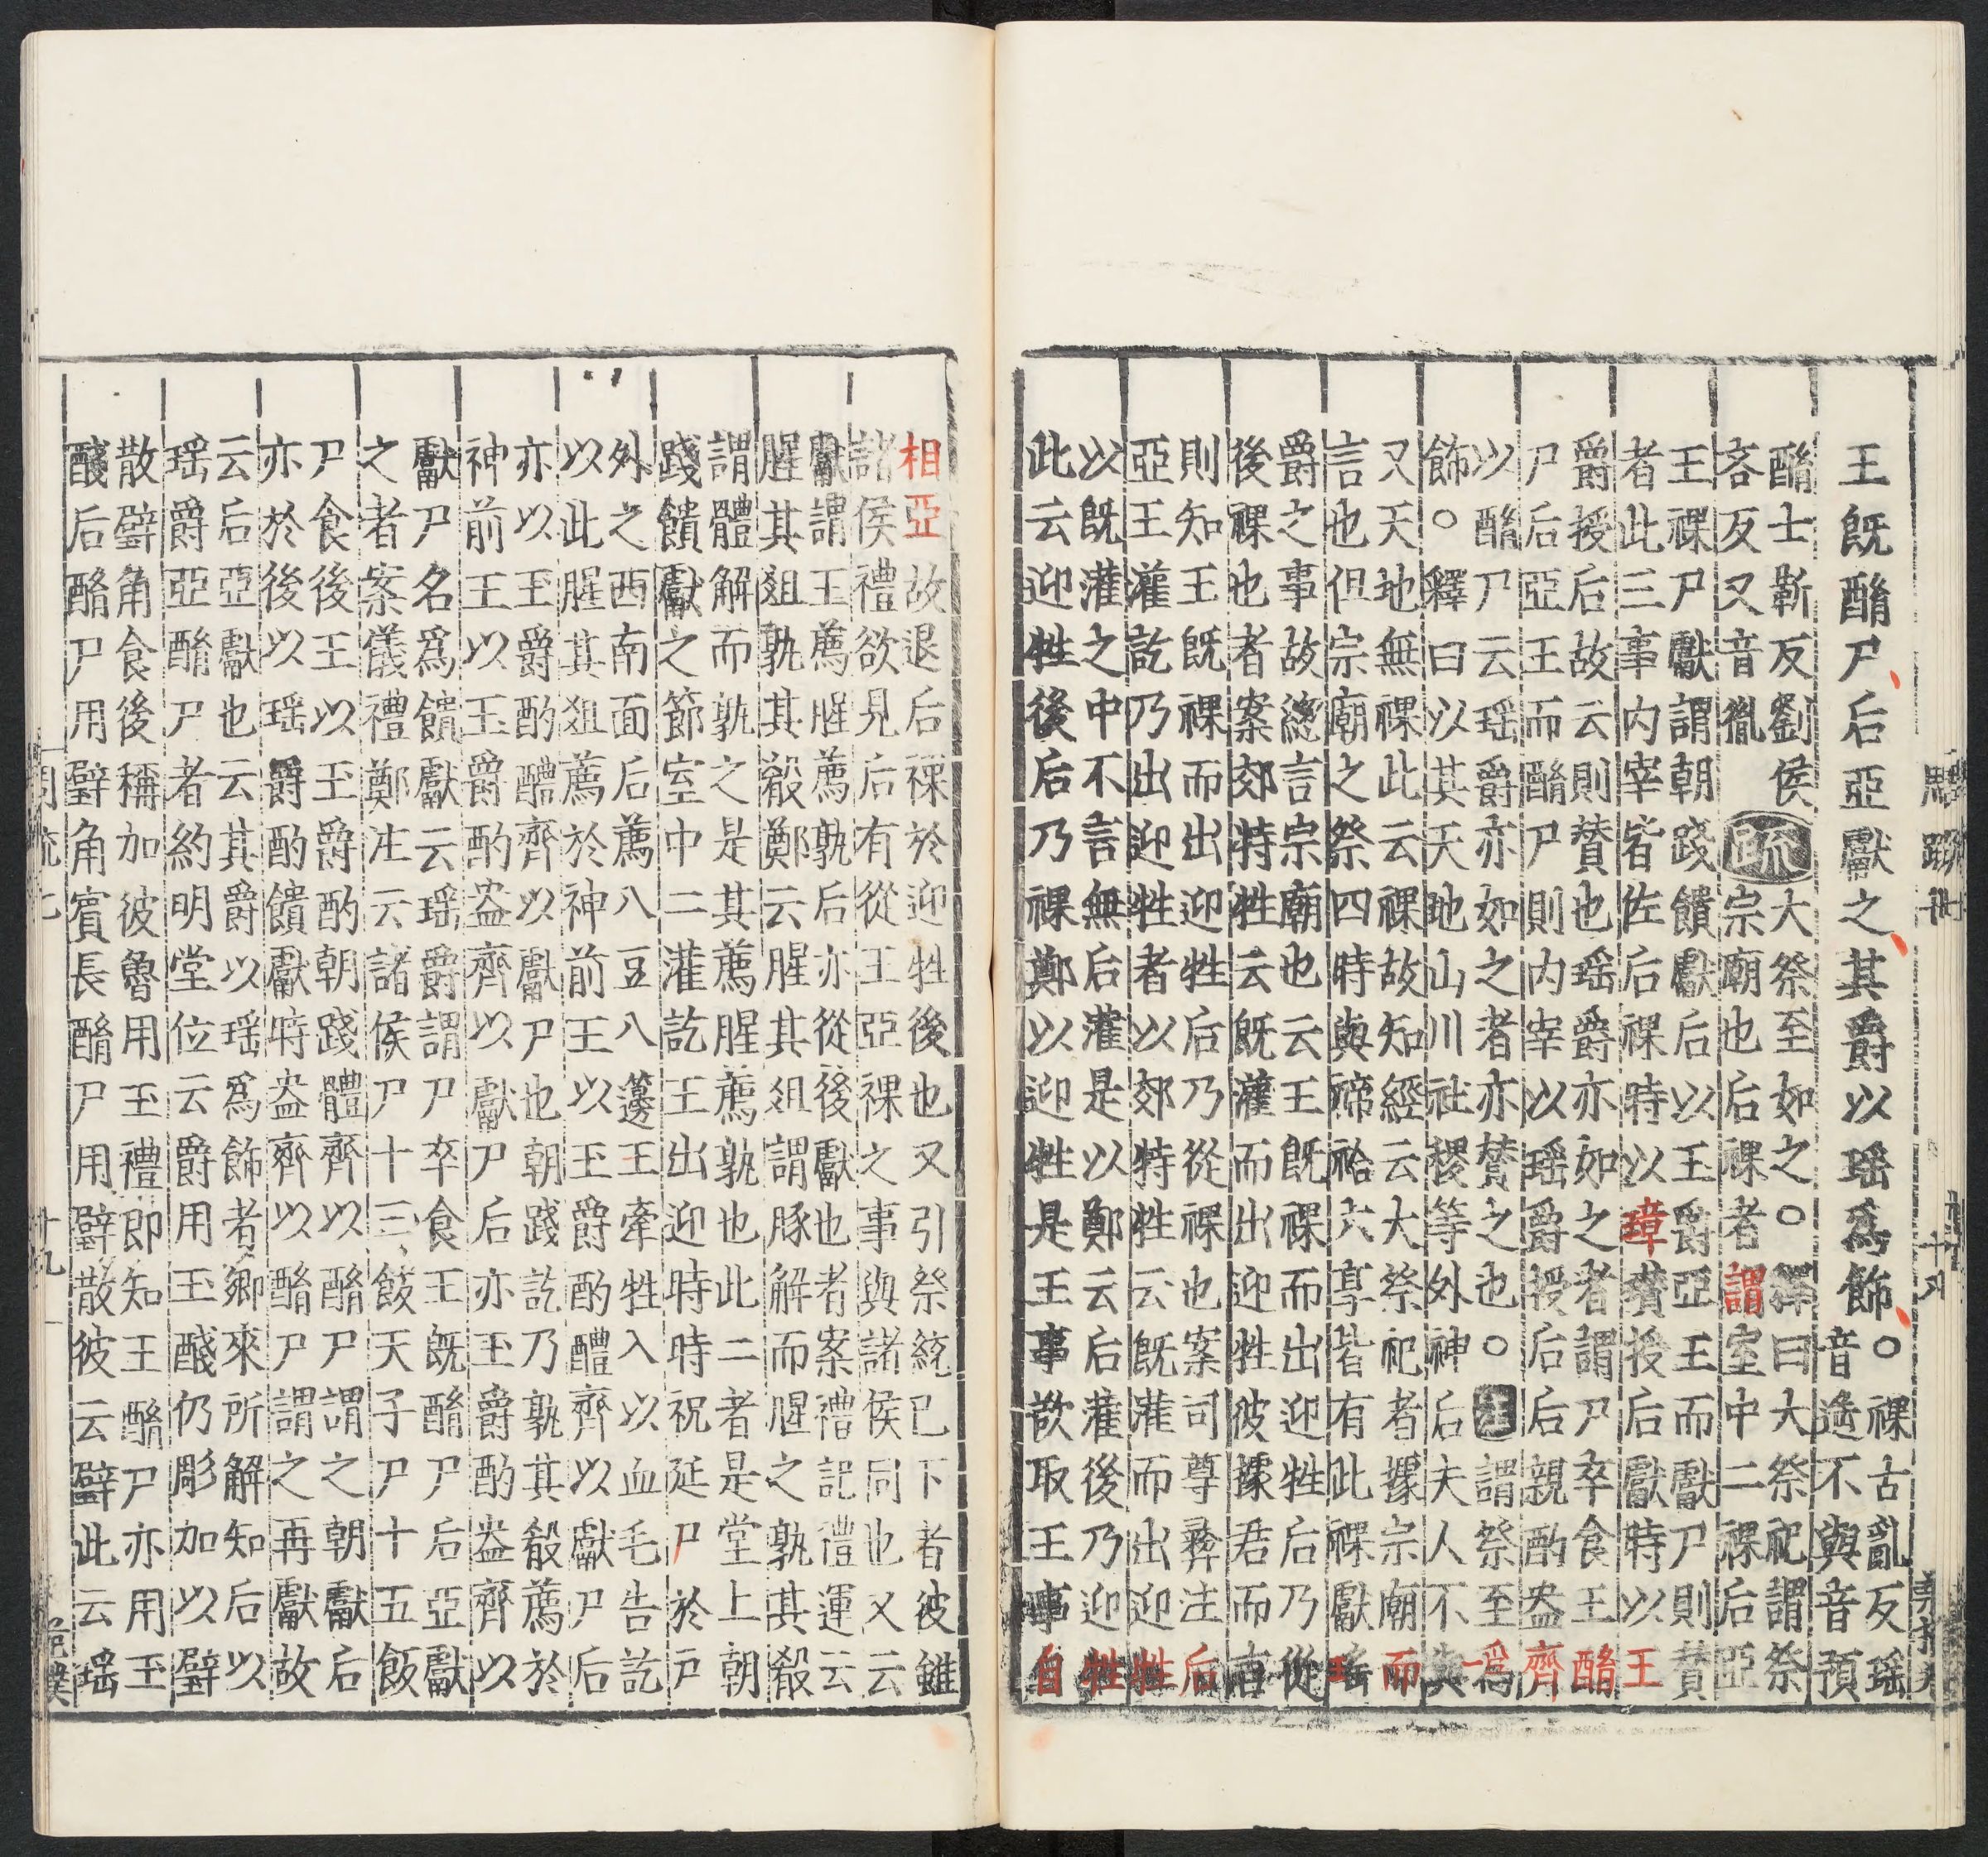 王既酳尸后亞獻之其爵以瑤爲飾○
祼古亂反瑤
音遙不與音預
酳士靳反劉侯
吝反又音胤
疏
大祭至如之○釋曰大祭祀謂祭
宗廟也后祼者謂室中二祼后亞
王祼尸獻謂朝踐饋獻后以玉爵亞王而獻尸則賛
者此三事内宰皆佐后祼時以璋瓚授后獻時以王
爵授后故云則賛也瑤爵亦如之者謂尸卒食王酳
尸后亞王而酳尸則内宰以瑤爵授后后親酌盎齊
以酳尸云瑤爵亦如之者亦賛之也○注謂祭至爲
飾○釋曰以其天地山川社稷等外神后夫人不與
又天地無祼此云祼故知經云大祭祀者據宗廟而
言也但宗廟之祭四時與禘祫六享皆有此祼獻瑤
爵之事故緫言宗廟也云王既祼而出迎牲后乃從
後祼也者案郊特牲云既灌而出迎牲彼據君而言
則知王既祼而出迎牲后乃從祼也案司尊彝注后
亞王灌訖乃出迎牲者以郊特牲云既灌而出迎牲
以既灌之中不言無后灌是以鄭云后灌後乃迎牲
此云迎牲後后乃祼鄭以迎牲是王事欲取王事自
相亞故退后祼於迎牲後也又引祭統已下者彼雖
諸侯禮欲見后有從王亞祼之事與諸侯同也又云
獻謂王薦腥薦孰后亦從後獻也者案禮記禮運云
腥其俎孰其殽鄭云腥其俎謂豚解而腥之孰其殽
謂體解而孰之是其薦腥薦孰也此二者是堂上朝
踐饋獻之節室中二灌訖王出迎時時祝延尸於戶
外之西南面后薦八豆八籩王牽牲入以血毛告訖
以此腥其俎薦於神前王以玉爵酌醴齊以獻尸后
亦以玉爵酌醴齊以獻尸也朝踐訖乃孰其殽薦於
神前王以玉爵酌盎齊以獻尸后亦玉爵酌盎齊以
獻尸名爲饋獻云瑤爵謂尸卒食王既酳尸后亞獻
之者案儀禮鄭注云諸侯尸十三飯天子尸十五飯
尸食後王以玉爵酌朝踐醴齊以酳尸謂之朝獻后
亦於後以瑤爵酌饋獻時盎齊以酳尸謂之再獻故
云后亞獻也云其爵以瑤爲飾者鄉來所解知后以
瑤爵亞酳尸者約明堂位云爵用玉醆仍彫加以璧
散璧角食後稱加彼魯用玉禮即知王酳尸亦用玉
醆后酳尸用璧角賓長酳尸用璧散彼云璧此云瑤